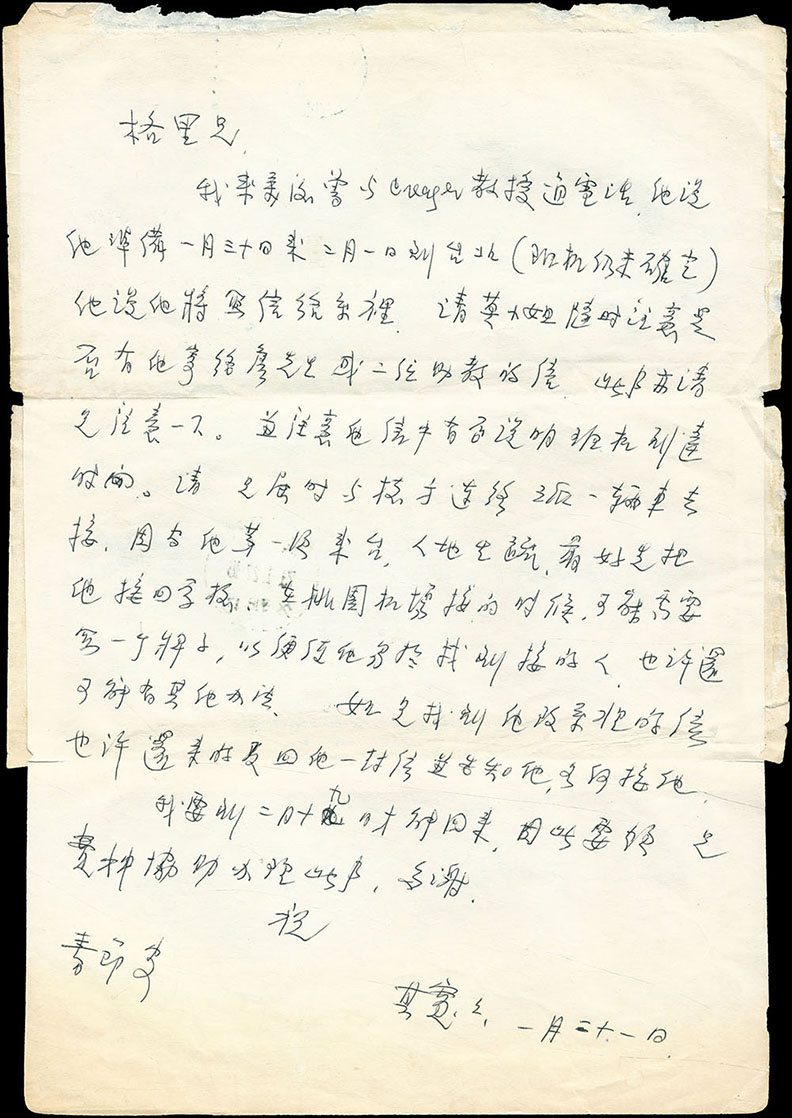 格里兄,
我来美後曾与 Creager 教授通電话, 他说
他準備一月三十日来 二月一日到台北 (班机仍未確定)
他说他將写信给系裡. 请莫小姐随时注意是
否有他寄给 先生或二位助教的信 此事亦请
兄注意一下。 並注意他信中有否说明班机到達
时间。请 兄届时与校方连络 派一辆車去
接. 因为他第一次来台, 人地生疏, 最好先把
他接回学校. 在桃園机場接的时候, 可能需要
写一个牌子, 以便使他易於找到接的人. 也许還
可能有其他办法. 如兄找到他改来班的信
也许還来的及回他一封信並告知他, 如何接他.
我要到二月十九日才能回来, 因此要煩 兄
費神協助办理此事, 多谢.
祝
春節安
其寬上. 一月二十一日.